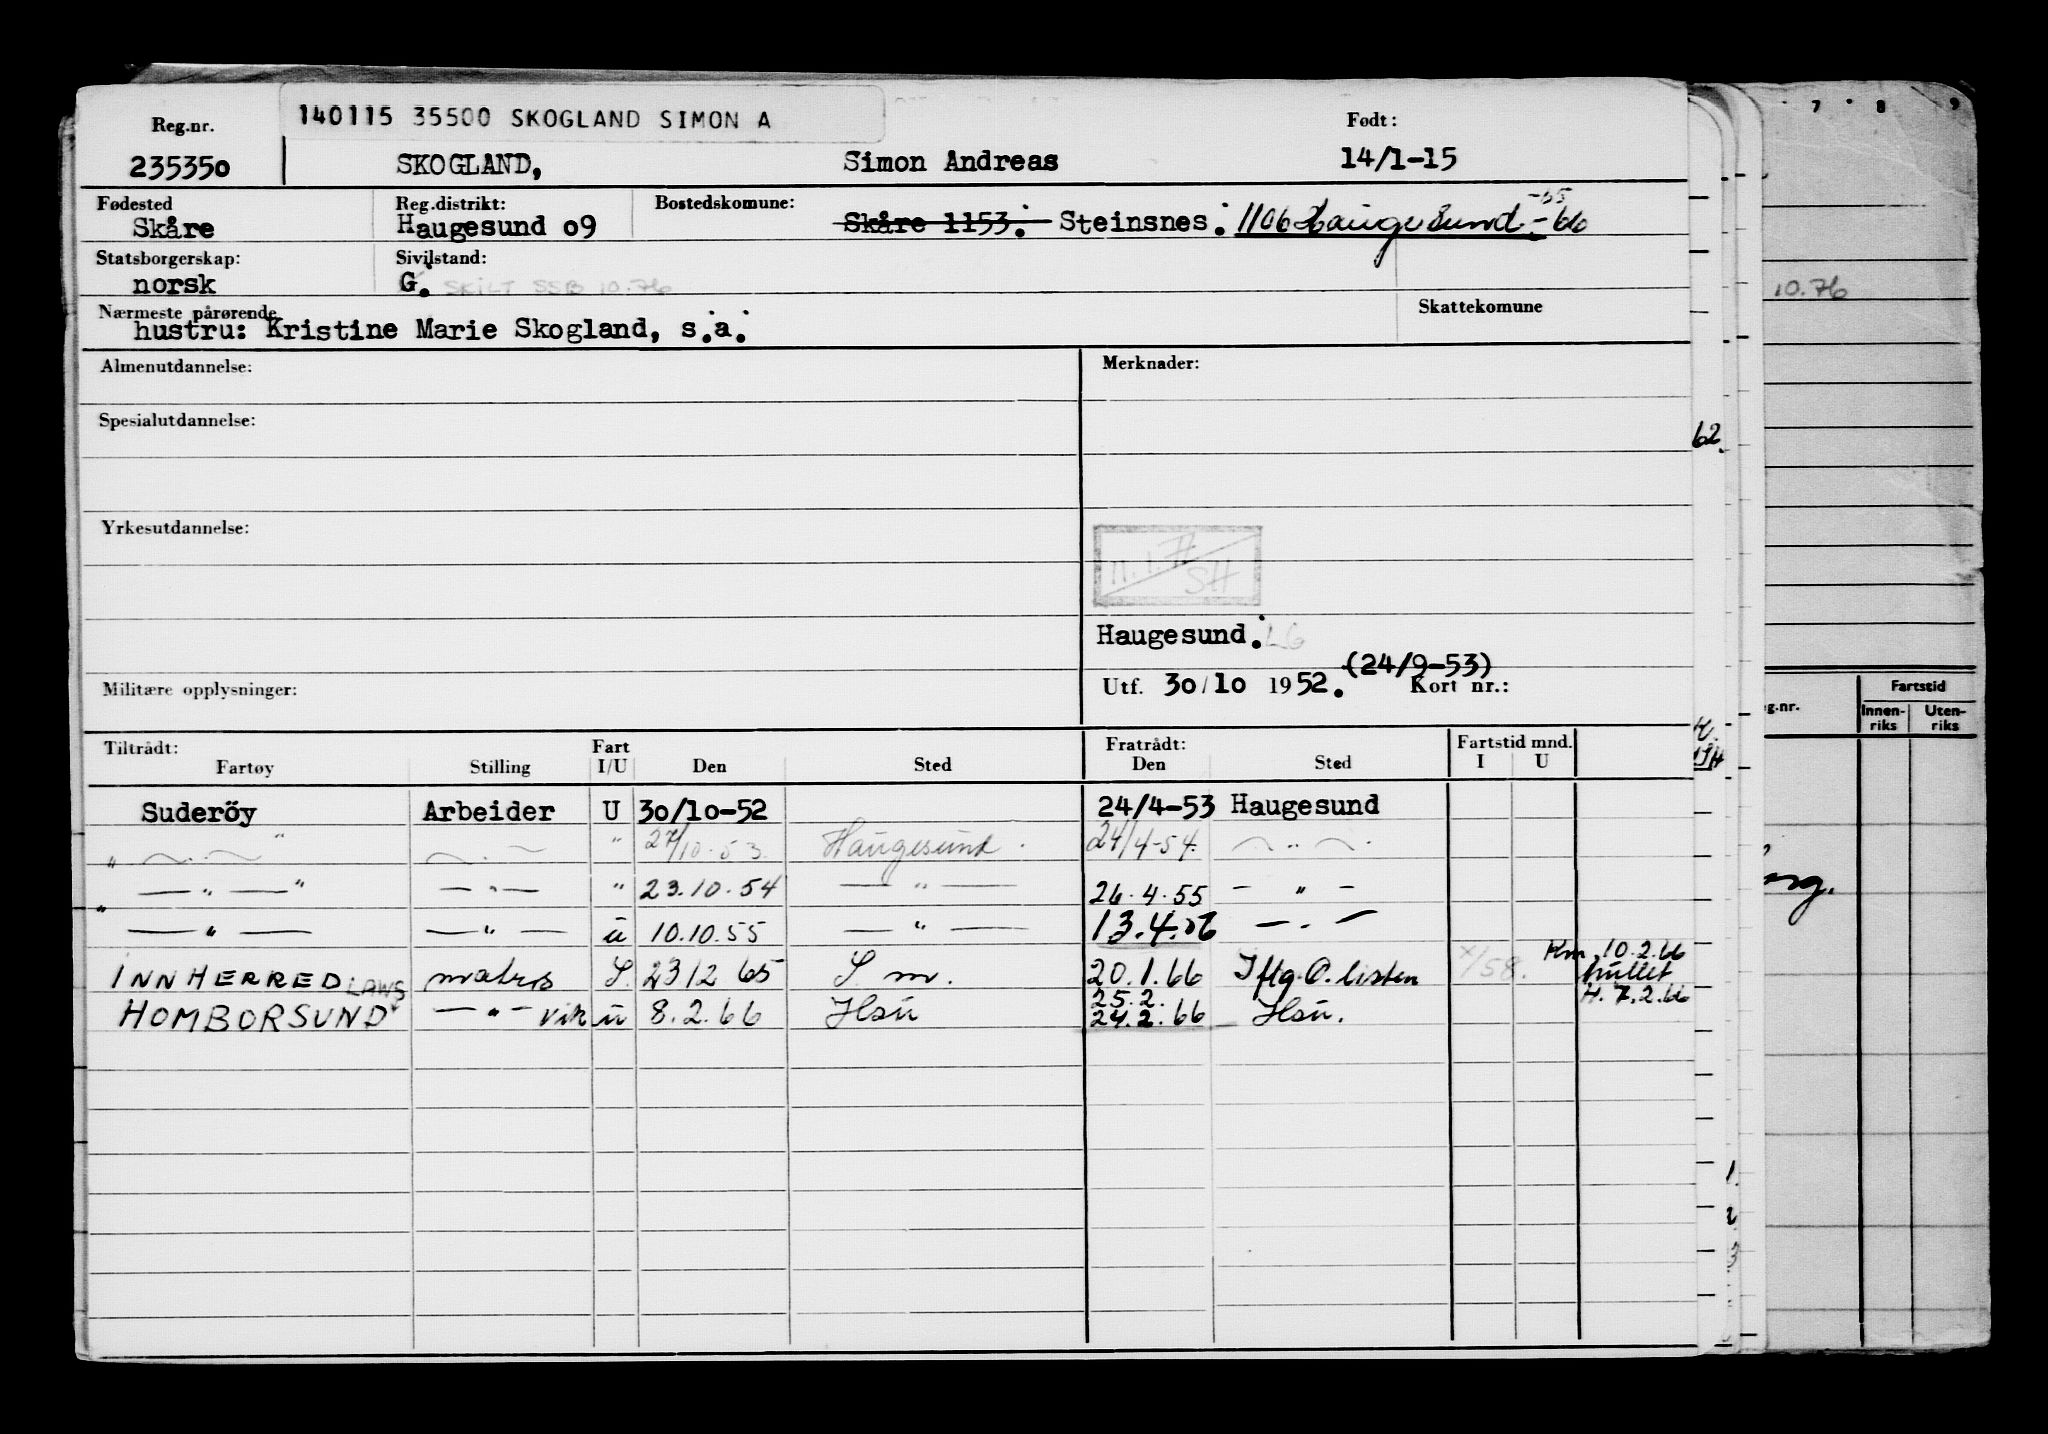 140115 35500 SKOGLAND SIMON A
Reg.nr. Født:
235350 SKOGLAND, Simon Andreas 14/1-15
Fødested Reg.distrikt: Bostedskomune: -65
Skåre Haugesund 09 Skåre 1153. Steinsnes. 1106 Haugesund -66
Statsborgerskap: Sivilstand:
norsk G. SKILT SSB 10.76
Nærmeste pårørende Skattekomune
hustru: Kristine Marie Skogland, s.a.
Almenutdannelse: Merknader:
Spesialutdannelse:
Yrkesutdannelse:
SH
Haugesund. L6
(24/9-53)
Militære opplysninger: Utf. 30/10 1952. Kort nr.:
Tiltrådt: Fart Fratrådt: Fartstid mnd.
Fartøy Stilling I/U Den Sted Den Sted I U
Suderöy Arbeider U 30/10-52 24/4-53 Haugesund
" — " — " — " — " 27/10-53. Haugesund. 24/4-54. — " —
" — " — " — " — " 23.10.54 — " — 26.4.55 — " —
— " — — " — u 10.10.55 — " — 13.4.56 — " —
INNHERRED LAWS matros S. 2312 65 S.m. 20.1.66 Iflg. O. listen x/58. Km. 10.2.66
hullet
H. 7.2.66
HOMBORSUND — " — vik u 8.2.66 Hsu 25.2.
24.2.66 Hsu.
7 8 9
10.76
62.
g.nr. Fartstid
Innen-riks Uten-riks